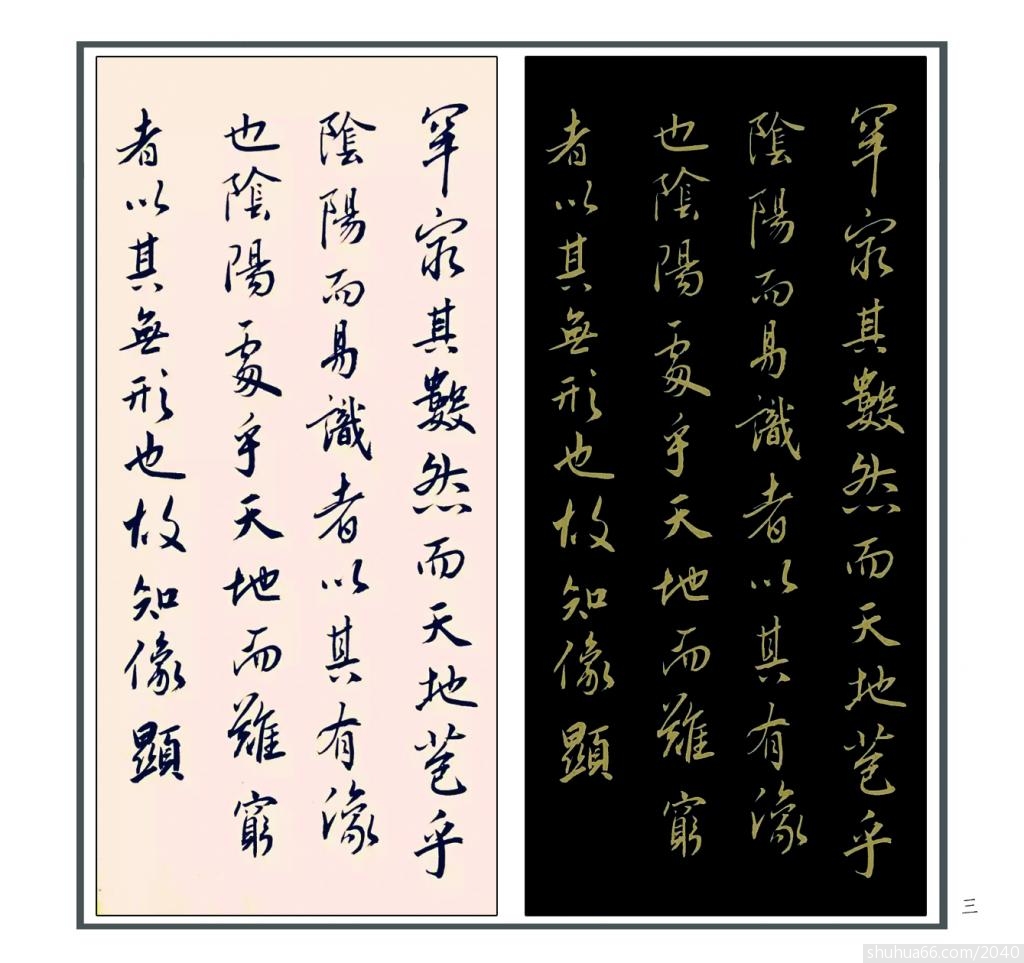 罕窮其數然而天地苞乎
陰陽而易識者以其有像
也陰陽處乎天地而難窮
者以其無形也故知像顯
罕窮其數然而天地苞乎
陰陽而易識者以其有像
也陰陽處乎天地而難窮
者以其無形也故知像顯
三
shuhua66.com/2040